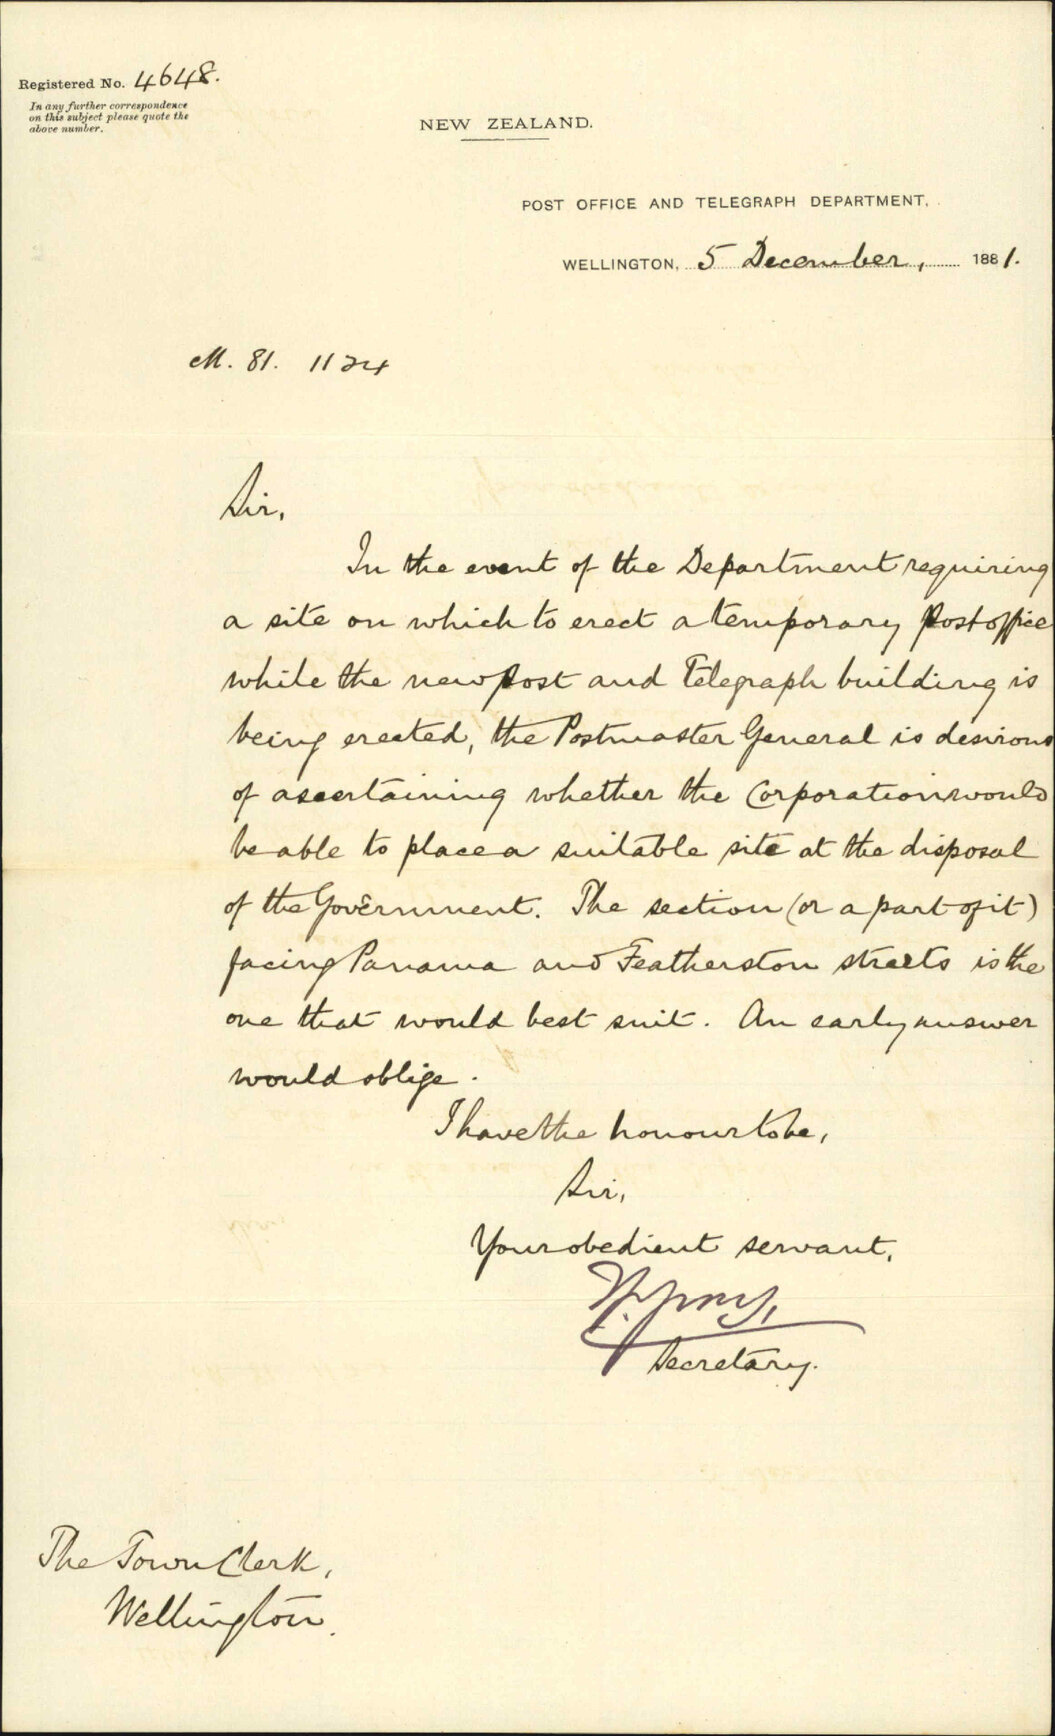 Registered No. 4648.
In any further correspondence
on this subject please quote the
above number.
NEW ZEALAND.
POST OFFICE AND TELEGRAPH DEPARTMENT,
WELLINGTON, 5 December, 1881.
M. 81. 1124
Sir,
In the event of the Department requiring
a site on which to erect a temporary Post office
while the new Post and Telegraph building is
being erected, the Postmaster General is desirous
of ascertaining whether the Corporation would
be able to place a suitable site at the disposal
of the Government. The section (or a part of it)
facing Panama and Featherston streets is the
one that would best suit. An early answer
would oblige.
I have the honour to be,
Sir,
Your obedient servant,
Secretary.
The Town Clerk,
Wellington.